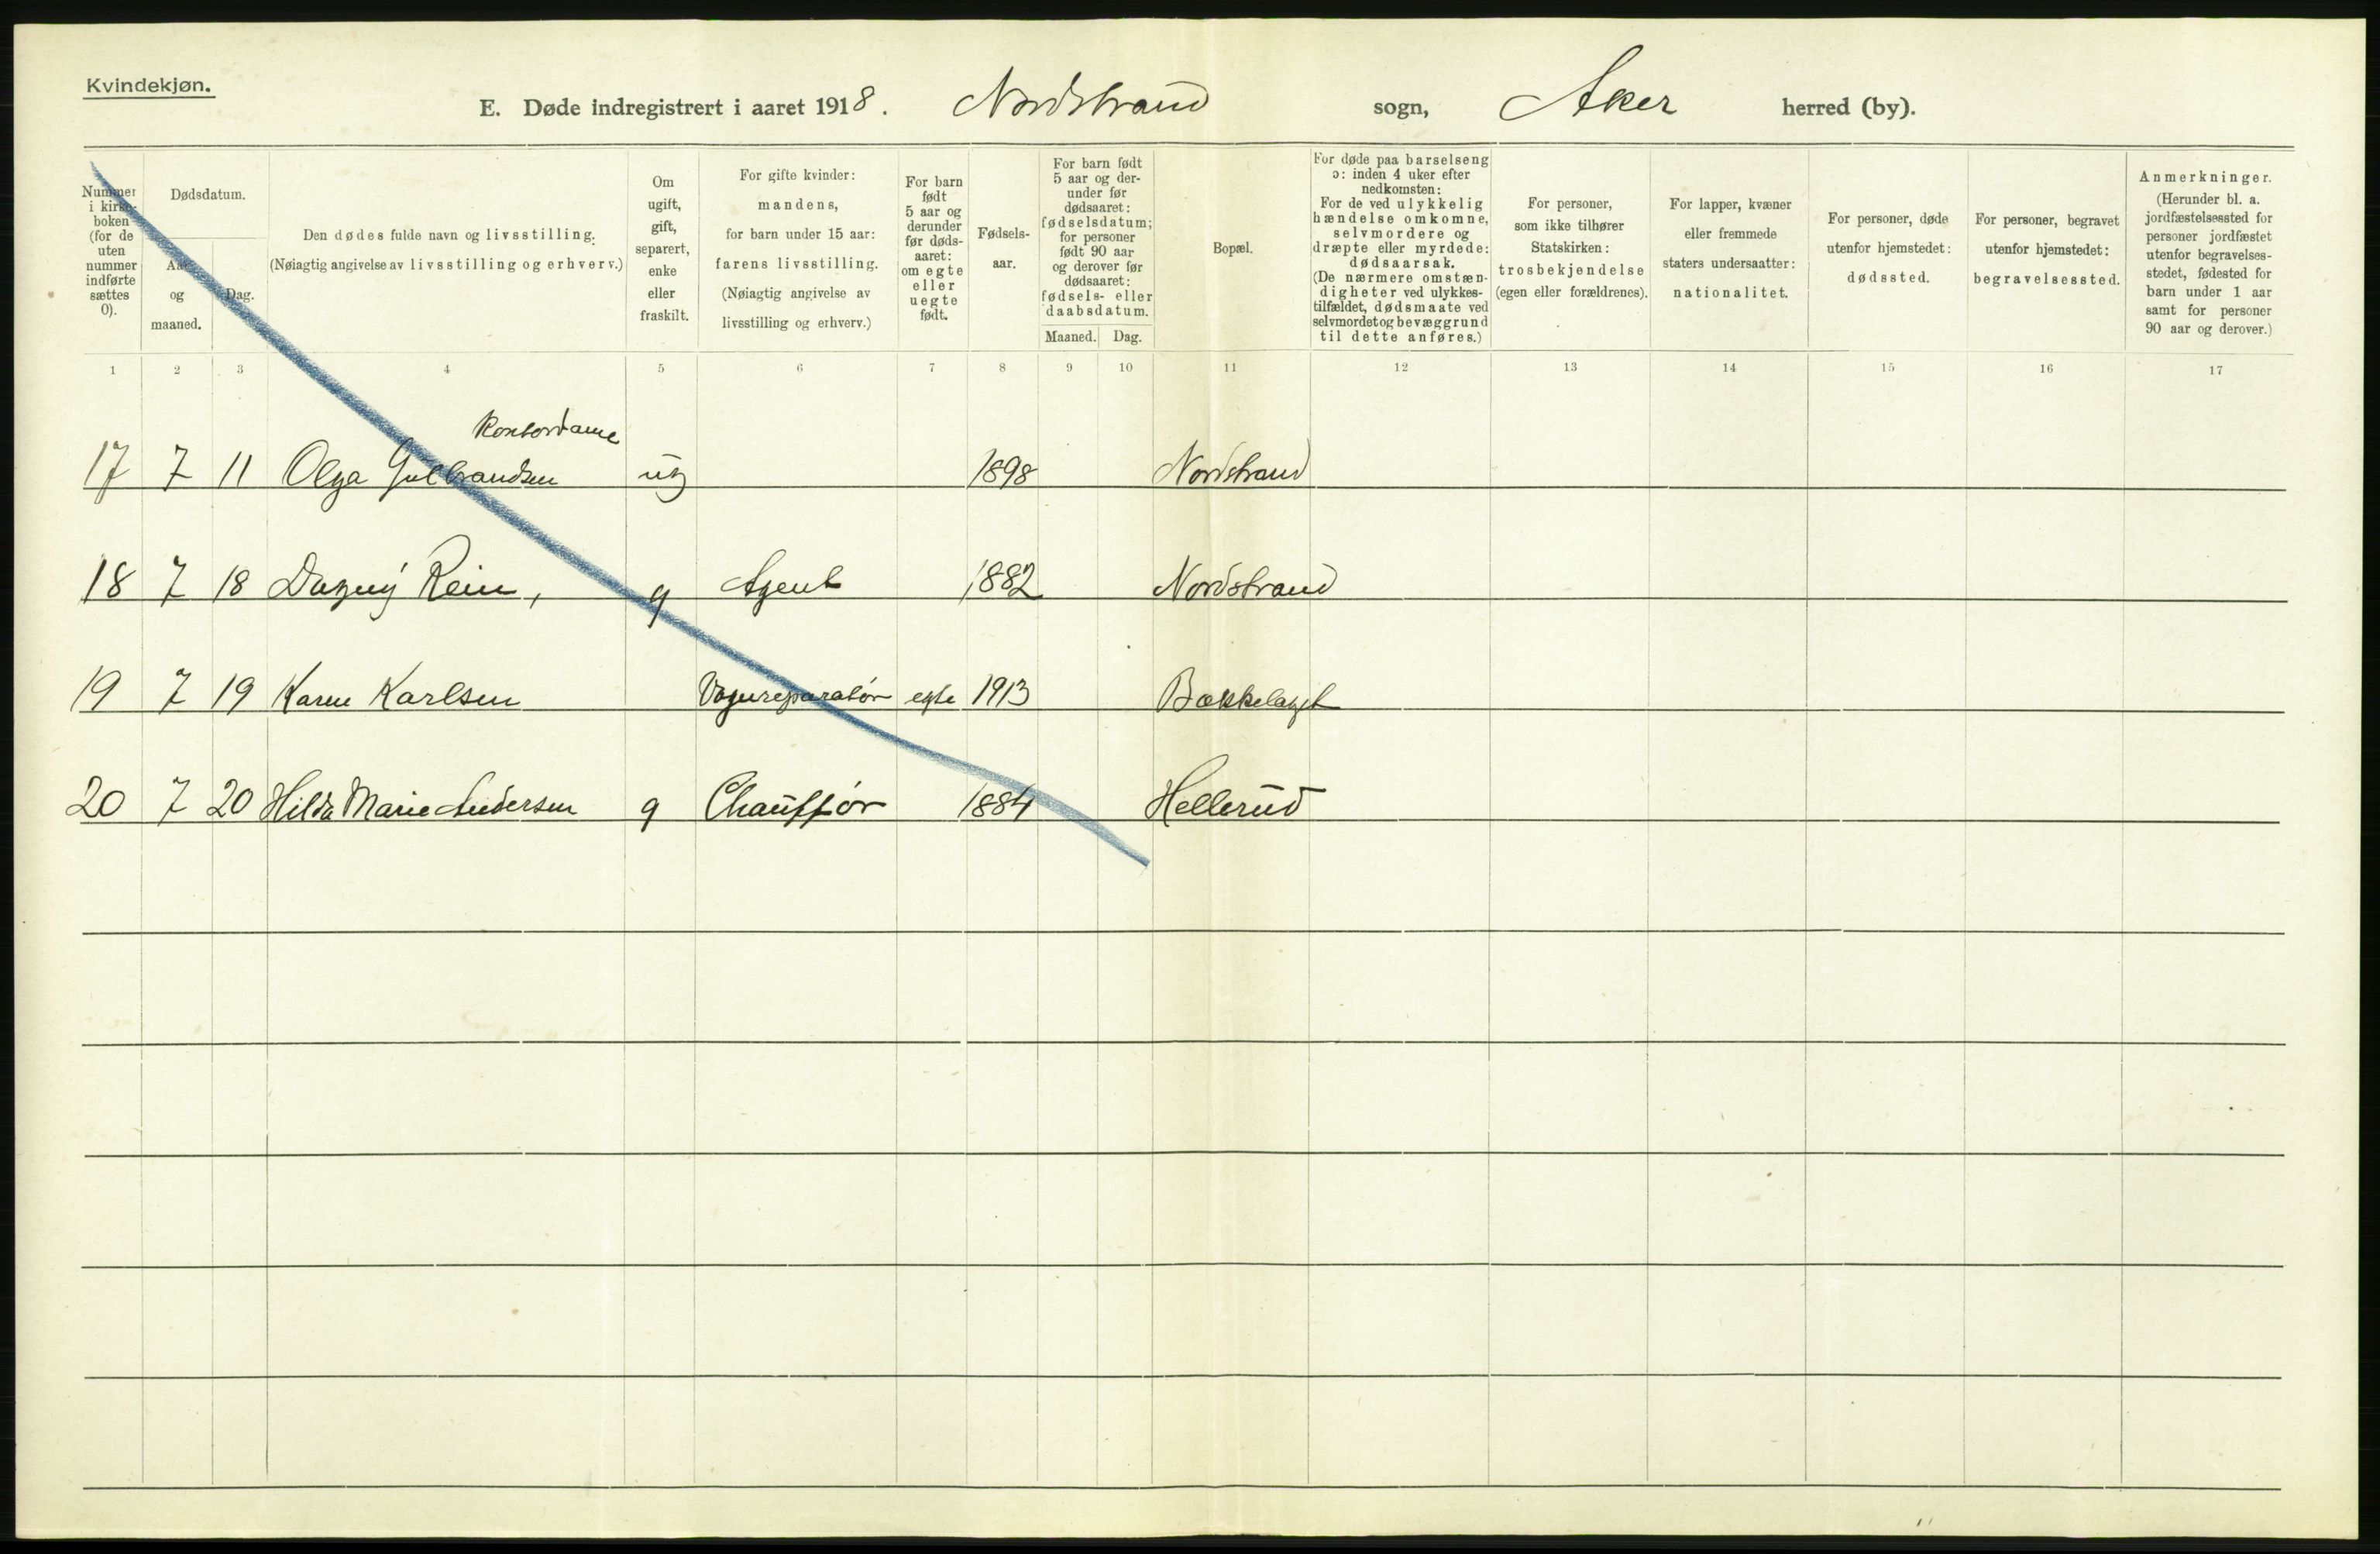 Kvindekjøn.
E. Døde indregistrert i aaret 1918. Nordstrand sogn, Aker herred (by).
Nummer i kirke-boken (for de uten nummer indførte sættes 0).
Dødsdatum.
Aar og maaned.
Dag.
Den dødes fulde navn og livsstilling.
(Nøiagtig angivelse av livsstilling og erhverv.)
Om ugift, gift, separert, enke eller fraskilt.
For gifte kvinder: mandens, for barn under 15 aar: farens livsstilling. (Nøiagtig angivelse av livsstilling og erhverv.)
For barn født 5 aar og derunder før døds-aaret: om egte eller uegte født.
Fødsels-aar.
For barn født 5 aar og der-under før dødsaaret: fødselsdatum; for personer født 90 aar og derover før dødsaaret: fødsels- eller daabsdatum.
Maaned. Dag.
Bopæl.
For døde paa barselseng ɔ: inden 4 uker efter nedkomsten: For de ved ulykkelig hændelse omkomne, selvmordere og dræpte eller myrdede: dødsaarsak. (De nærmere omstæn-digheter ved ulykkes-tilfældet, dødsmaate ved selvmordet og bevæggrund til dette anføres.)
For personer, som ikke tilhører Statskirken: trosbekjendelse (egen eller forældrenes).
For lapper, kvæner eller fremmede staters undersaatter: nationalitet.
For personer, døde utenfor hjemstedet: dødssted.
For personer, begravet utenfor hjemstedet: begravelsessted.
Anmerkninger. (Herunder bl. a. jordfæstelsessted for personer jordfæstet utenfor begravelses-stedet, fødested for barn under 1 aar samt for personer 90 aar og derover.)
1 2 3 4 5 6 7 8 9 10 11 12 13 14 15 16 17
Kontordame
17 7 11 Olga Gulbrandsen ug 1898 Nordstrand
18 7 18 Dagny Rein, g Agent 1882 Nordstrand
19 7 19 Karen Karlsen Vognreparatør egte 1913 Bækkelaget
20 7 20 Hilda Marie Andersen g Chauffør 1884 Hellerud